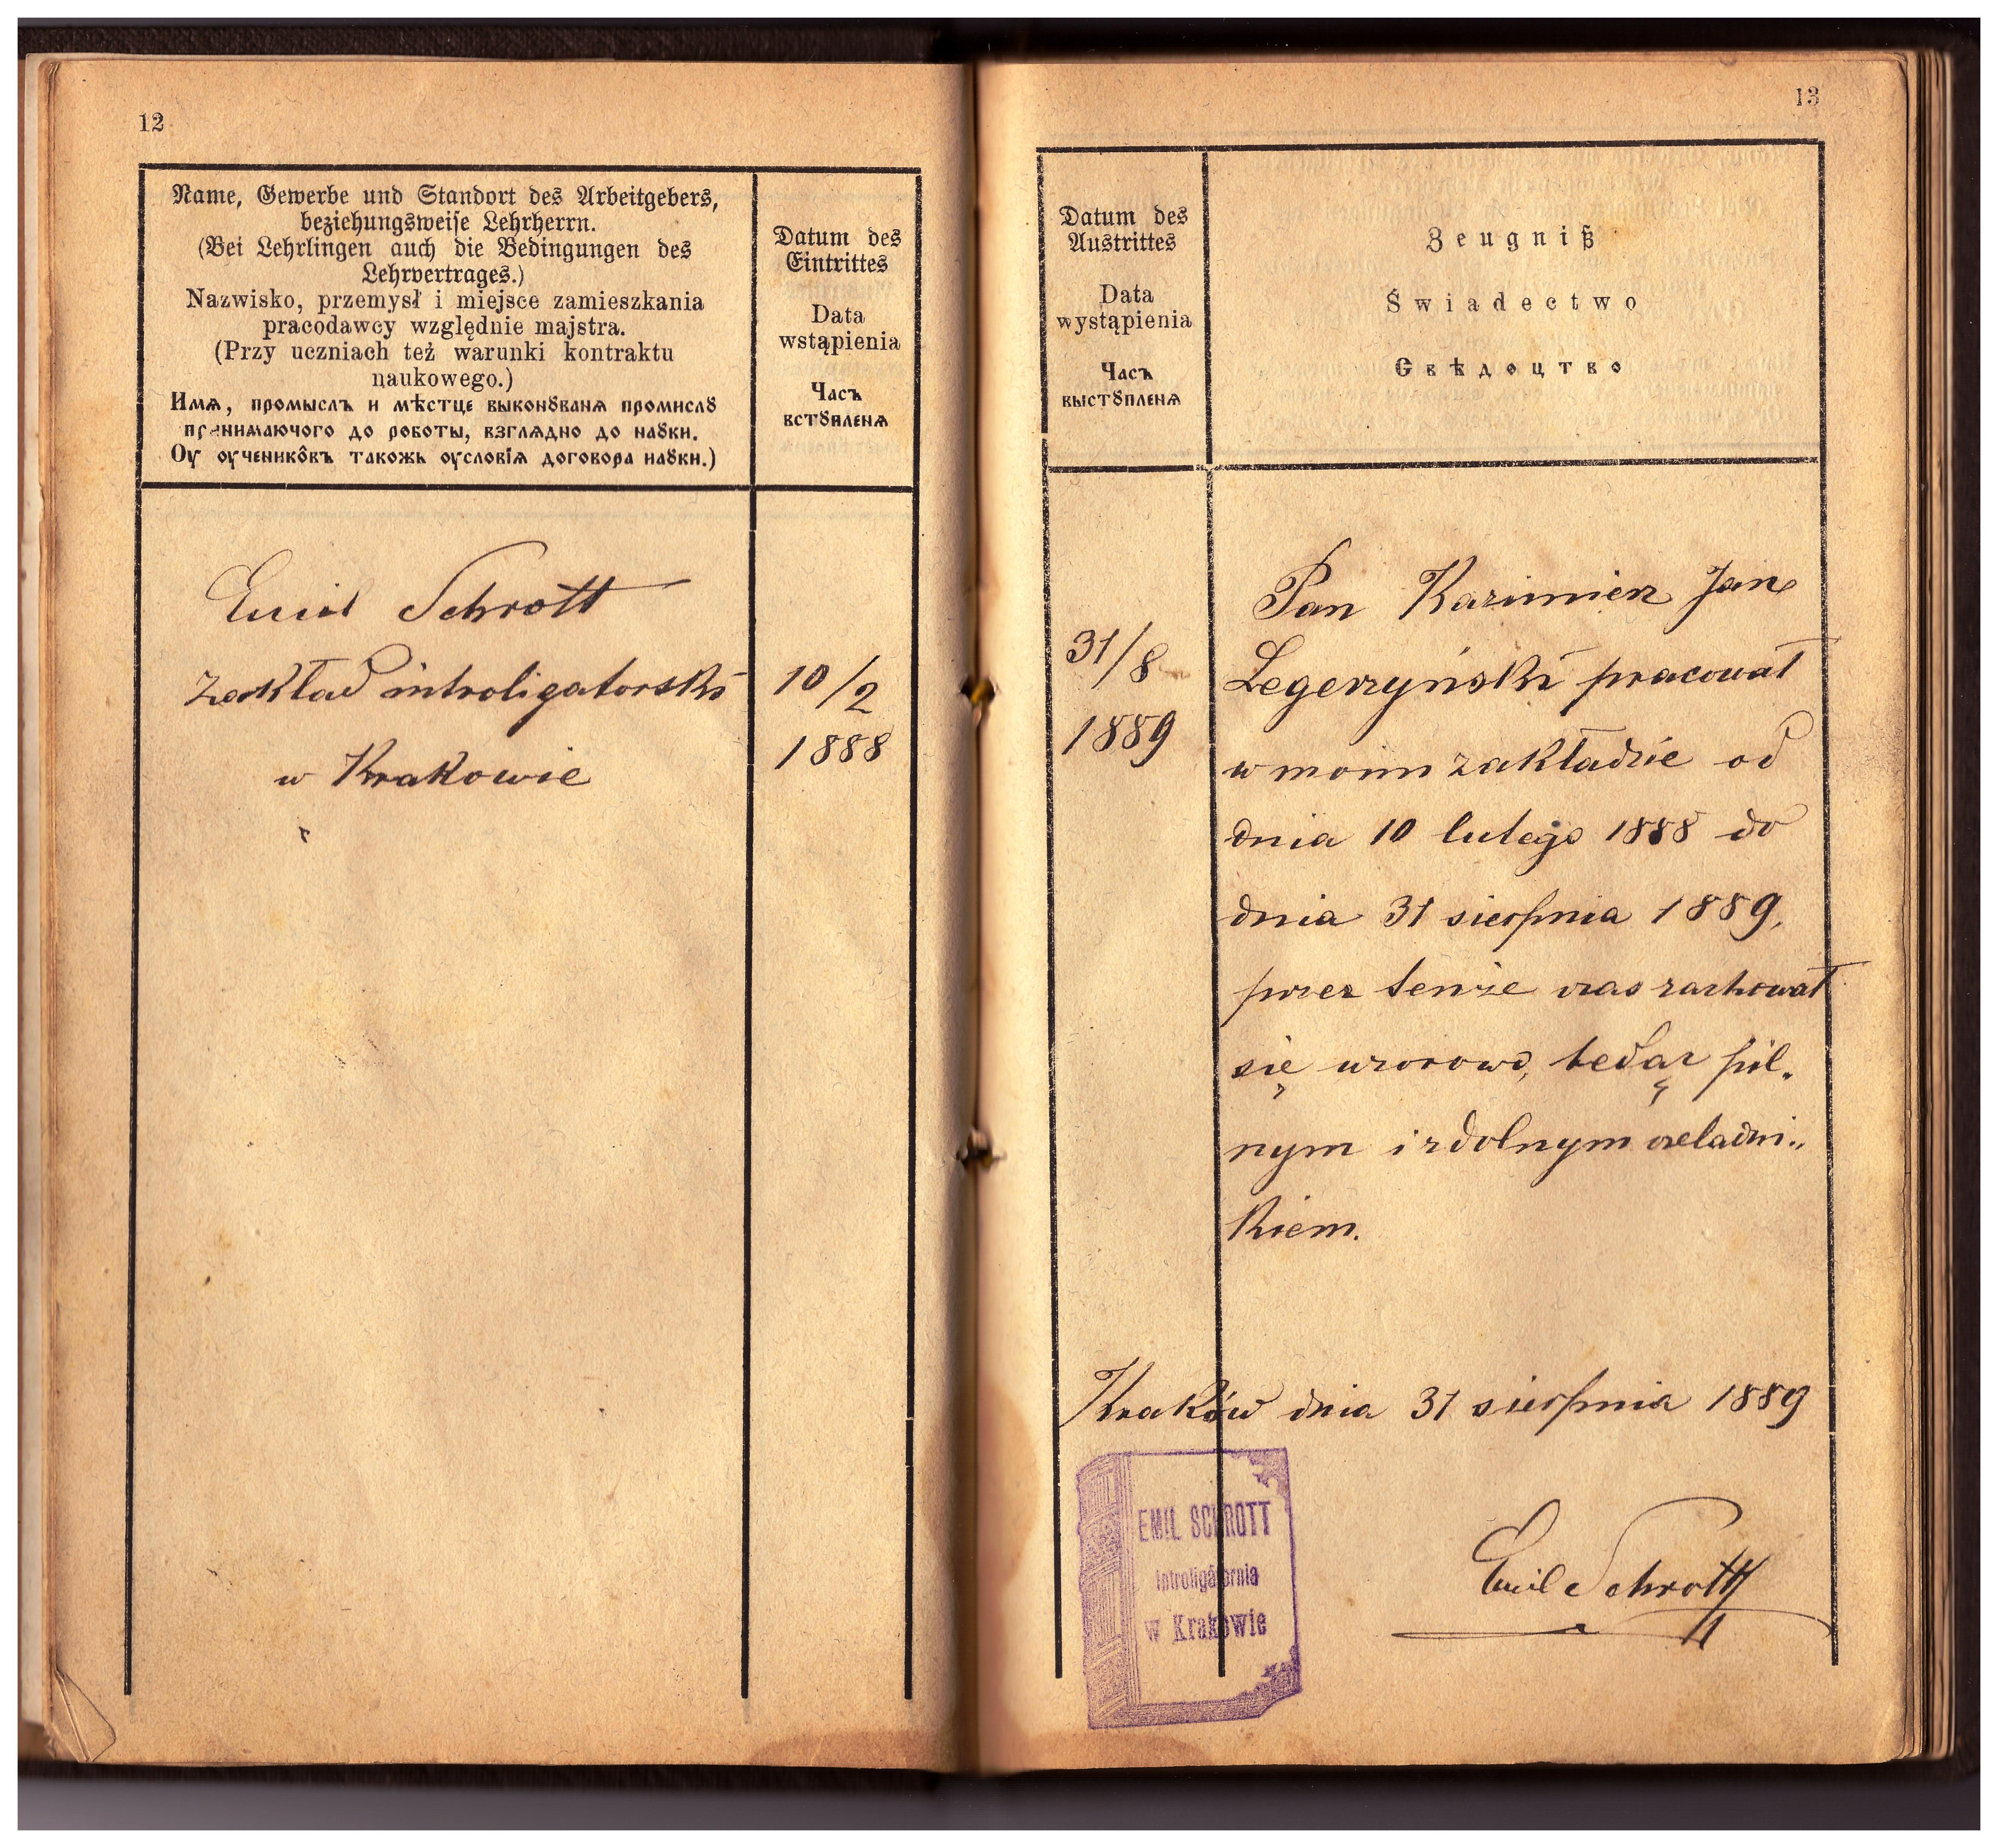 12
Name, Gewerbe und Standort des Arbeitgebers,
beziehungsweise Lehrherrn.
(Bei Lehrlingen auch die Bedingungen des
Lehrvertrages.)
Nazwisko, przemysł i miejsce zamieszkania
pracodawcy względnie majstra.
(Przy uczniach też warunki kontraktu
naukowego.)
Имѧ, промыслъ и мѣстце выконꙋванѧ промислꙋ
принимаючого до роботы, взглѧдно до наꙋки.
Оу оученикôвъ такожь оусловїѧ договора наꙋки.)
Datum des
Eintrittes
Data
wstąpienia
Часъ
встꙋпленѧ
Emil Schrott
Zakład introligatorski
w Krakowie
10/2
1888
13
Datum des
Austrittes
Data
wystąpienia
Часъ
выстꙋпленѧ
Zeugniß
Świadectwo
Свѣдоцтво
31/8
1889
Pan Kazimierz Jan
Legerzyński pracował
w moim zakładzie od
dnia 10 lutego 1888 do
dnia 31 sierpnia 1889,
przez tenże czas zachował
się wzorowo, będąc pil„
nym i zdolnym czeladni„
kiem.
Kraków dnia 31 sierpnia 1889
EMIL SCHROTT
introligatornia
w Krakowie
Emil Schrott